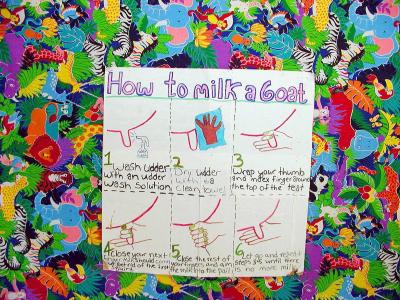 How to milk a Goat
1 Wash udder
with an udder
wash solution
2 Dry udder
with a
clean towel
3 Wrap your thumb
and index finger around
the top of the teat
4 Close your next
of the first
5 close the rest of
your fingers and
the milk into the pail
6 Let go and repeat
steps 3-5 until there
is no more milk